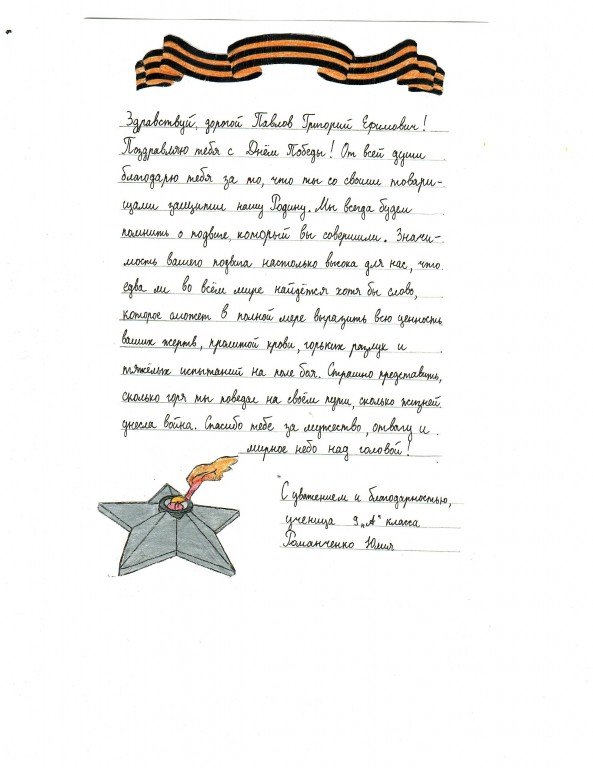 Здравствуй, дорогой Павлов Григорий Ефимович!
Поздравляю тебя с Днём Победы! От всей души
благодарю тебя за то, что ты со своими товари-
щами защитил нашу Родину. Мы всегда будем
помнить о подвиге, который вы совершили. Значи-
мость вашего подвига настолько высока для нас, что
едва ли во всём мире найдётся хотя бы слово,
которое сможет в полной мере выразить всю ценность
ваших жертв, пролитой крови, горьких разлук и
тяжёлых испытаний на поле боя. Страшно представить,
сколько горя ты поведал на своём пути, сколько жизней
унесла война. Спасибо тебе за мужество, отвагу и
мирное небо над головой!
С уважением и благодарностью,
ученица 9 „А" класса
Романченко Юлия